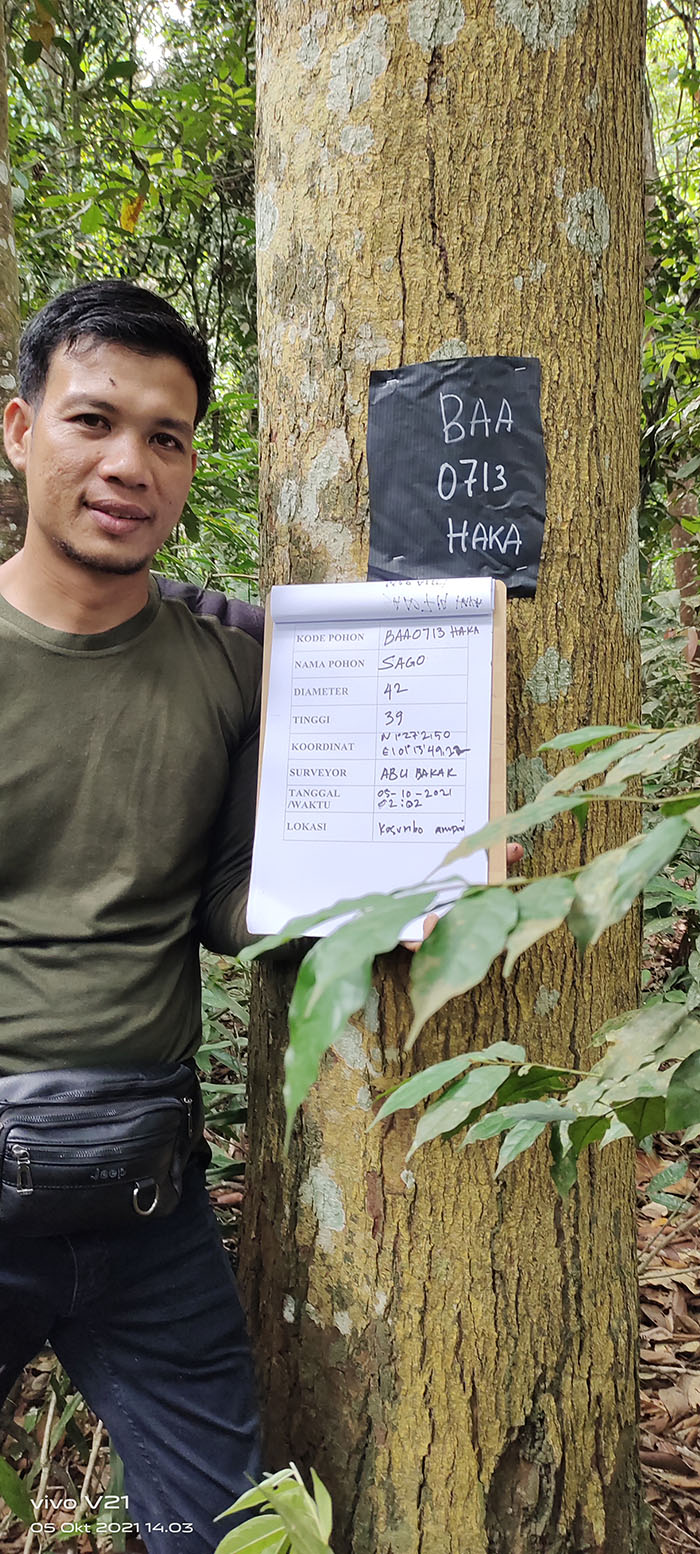 BAA
0713
HAKA
KODE POHON BAA0713 HAKA
NAMA POHON SAGO
DIAMETER 42
TINGGI 39
KOORDINAT N1°27'2150
E101°13'49.22
SURVEYOR ABU BAKAR
TANGGAL 05-10-2021
/WAKTU 02:02
LOKASI Kosumbo ampai
Jeep
vivo V21
05 Okt 2021 14.03